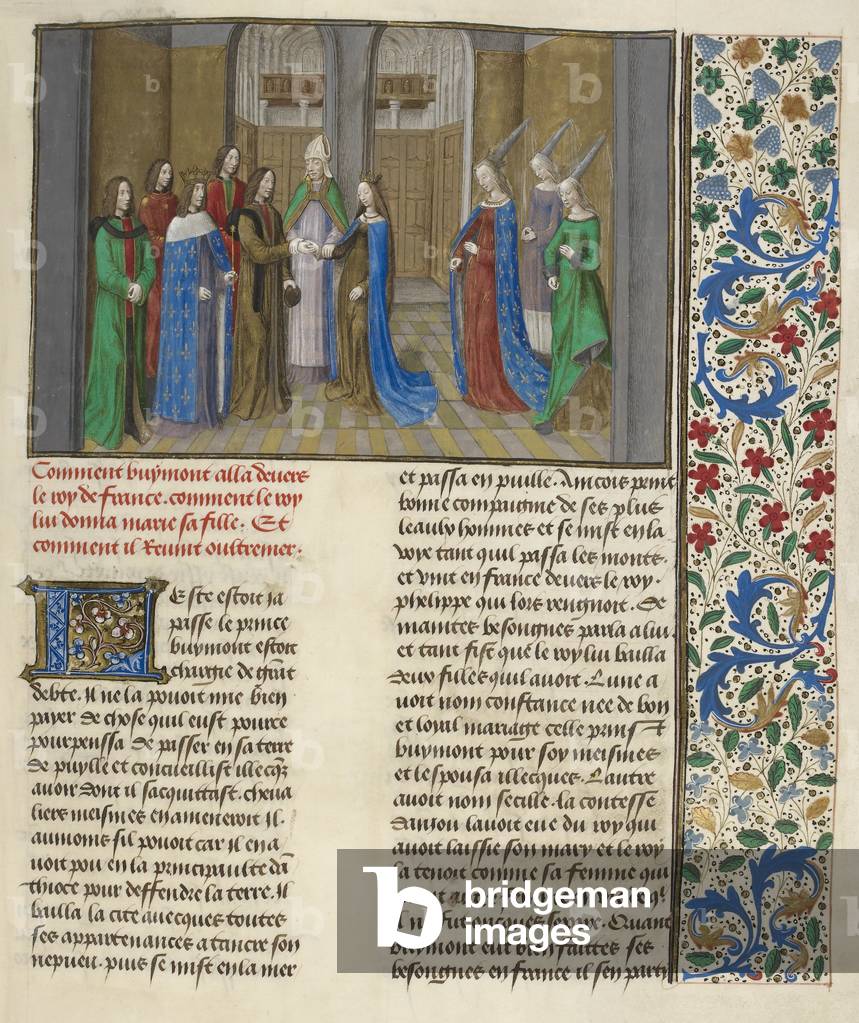 Comment buymont alla devers
le roy de france. comment le roy
luy donna marie sa fille. Et
comment il Revint oultremer.
Este estoit ja
passe le prince
buymont estoit
chargie de grãt
debte. Il ne la povoit mie bien
payer de chose quil eust pource
pourpenssa de passer en sa terre
de puylle et concueillist illecqz
avoir dont il sacquittast. cheva
liers meismes en ameneroit Il.
aumoins sil povoit car il en a
voit pou en la principaulte dã
thioce pour deffendre la terre. Il
bailla la cite avecques toutes
ses appartenances a tancre son
nepveu. puis se mist en la mer
et passa en puille. Aincois print
bonne compaignie de ses plus
leaulx hommes et se mist en la
voye tant quil passa les monts.
et vint en france devers le roy
phelippe qui lors rengnoit. De
maintes besongnes parla a lui.
et tant fist que le roy luy bailla
deux filles quil avoit. Lune a
voit nom constance nee de bon
et loyal mariage celle prinst
buymont pour soy meismes
et lespousa illecques. Lautre
avoit nom secille. la contesse
danjou lavoit eue du roy qui
avoit laissie son mary et le roy
la tenoit comme sa femme qui
Quant
buymont eut bien faittes ses
besongnes en france il sen parti
bridgeman
images